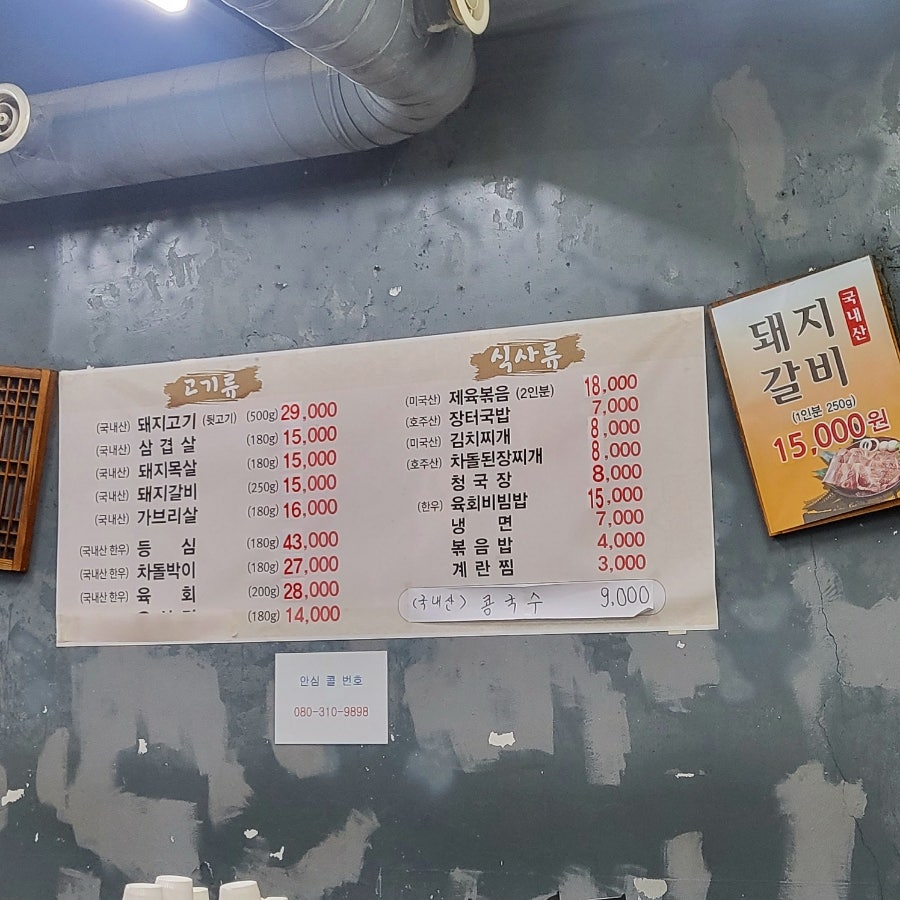 고기류
(국내산) 돼지고기 (뒷고기) (500g) 29,000
(국내산) 삼겹살 (180g) 15,000
(국내산) 돼지목살 (180g) 15,000
(국내산) 돼지갈비 (250g) 15,000
(국내산) 가브리살 (180g) 16,000
(국내산 한우) 등심 (180g) 43,000
(국내산 한우) 차돌박이 (180g) 27,000
(국내산 한우) 육회 (200g) 28,000
(180g) 14,000
식사류
(미국산) 제육볶음 (2인분) 18,000
(호주산) 장터국밥 7,000
(미국산) 김치찌개 8,000
(호주산) 차돌된장찌개 8,000
청국장 8,000
(한우) 육회비빔밥 15,000
냉면 7,000
볶음밥 4,000
계란찜 3,000
(국내산) 콩국수 9,000
국내산
돼지
갈비
(1인분 250g)
15,000원
안심 콜 번호
080-310-9898